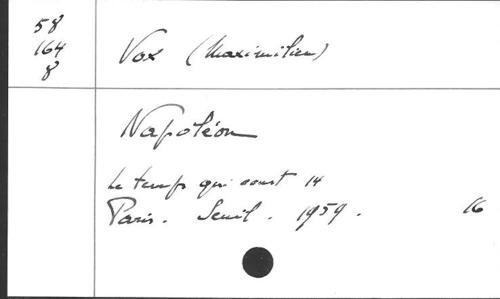 58
164
8
Vox (Maximilien)
Napoléon
Le temps qui court 14
Paris. Seuil. 1959. 16